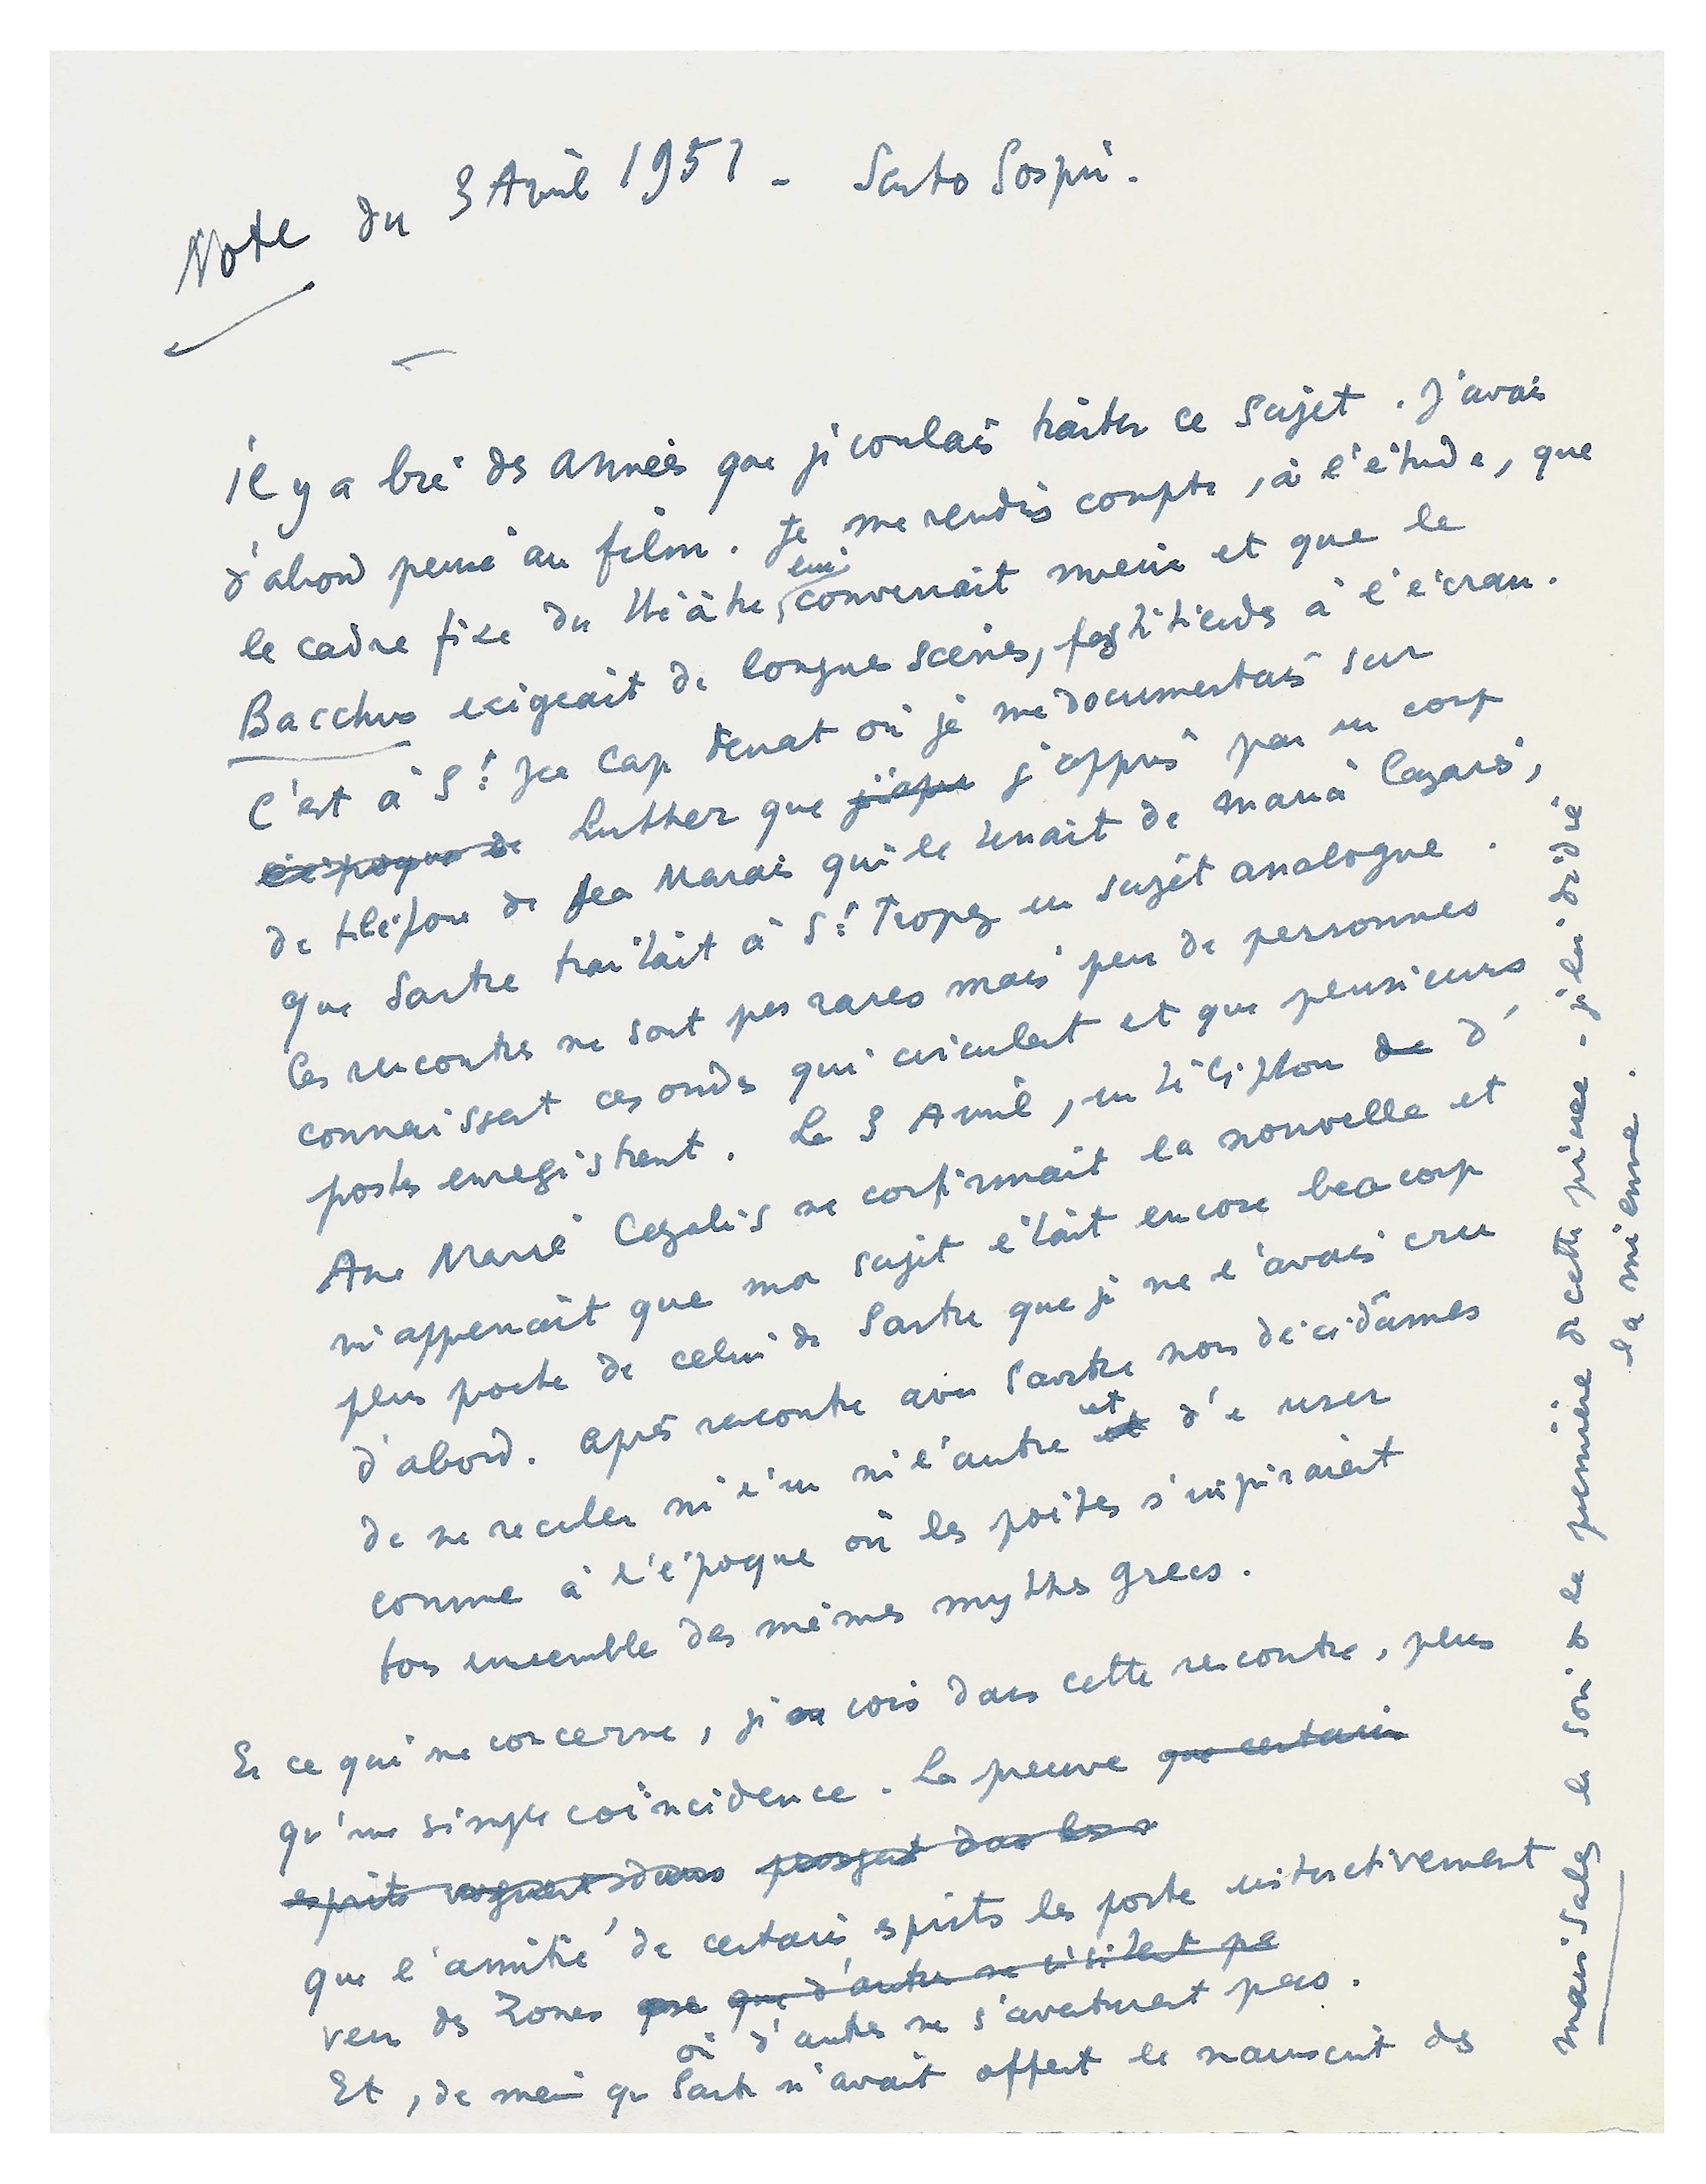 Note du 3 Avril 1951 - Santo Sospir.
Il y a bien des années que je voulais traiter ce sujet. J'avais
d'abord pensé au film. Je me rendis compte, à l'étude, que
le cadre fixe du théâtre lui convenait mieux et que le
Bacchus exigeait de longues scènes, fastidieuses à l'écran.
C'est à St Jean Cap Ferrat où je me documentais sur
l'époque de Luther que j'appri j'appris par un coup
de téléfone de Jean Marais qui le tenait de Maria Cazarès,
que Sartre traitait à St Tropez un sujet analogue.
Ces rencontres ne sont pas rares mais peu de personnes
connaissent ces ondes qui circulent et que plusieurs
postes enregistrent. Le 3 Avril, un téléphone de d'
Anne Marie Cazalis me confirmait la nouvelle et
m'apprenait que mon sujet était encore beaucoup
plus proche de celui de Sartre que je ne l'avais cru
d'abord. Après rencontre avec Sartre nous décidâmes
de ne reculer ni l'un ni l'autre et d'en user
comme à l'époque où les poètes s'inspiraient
tous ensemble des mêmes mythes grecs.
En ce qui me concerne, je vois dans cette rencontre, plus
qu'une simple coïncidence. La preuve que certains
esprits voguent dans
que l'amitié de certains esprits les porte instinctivement
vers des zones que d'autres ne visitent pas
où d'autres ne s'aventurent pas.
Et, de même que Sartre m'avait offert le manuscrit des
mains sales le soir de la première de cette pièce - je lui dédie
la mienne.